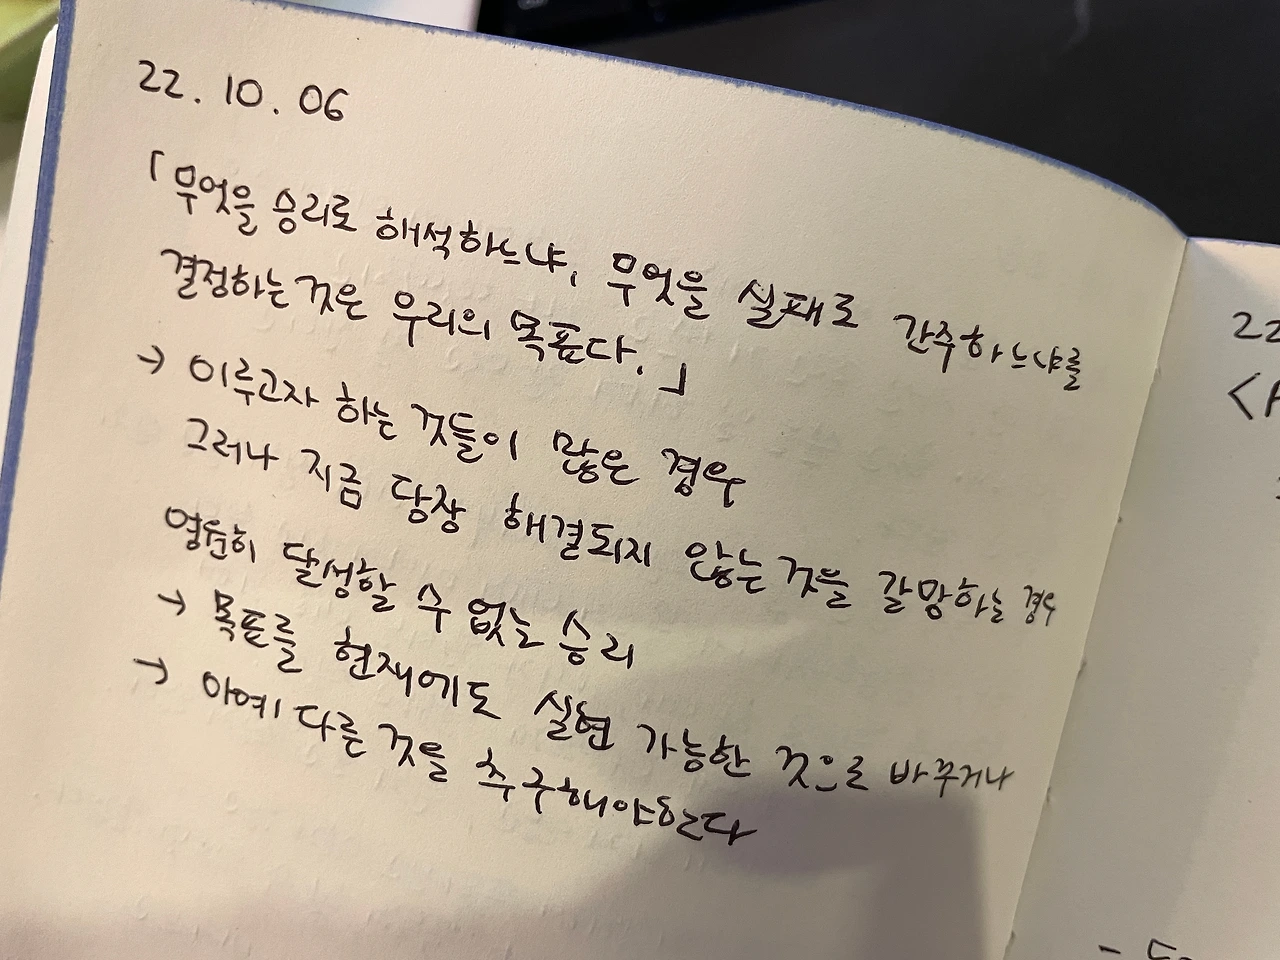 22. 10. 06
「무엇을 승리로 해석하느냐, 무엇을 실패로 간주하느냐를
결정하는 것은 우리의 목표다.」
→ 이루고자 하는 것들이 많은 경우
그러나 지금 당장 해결되지 않는 것을 갈망하는 경우
영원히 달성할 수 없는 승리
→ 목표를 현재에도 실현 가능한 것으로 바꾸거나
→ 아예 다른 것을 추구해야한다
22